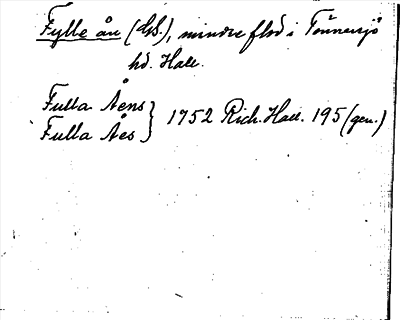 Fylle ån (GS.), mindre flod i Tönnersjö
hd. Hall.
Fulla Åens } 1752 Rich. Hall. 195 (gen.)
Fulla Åes